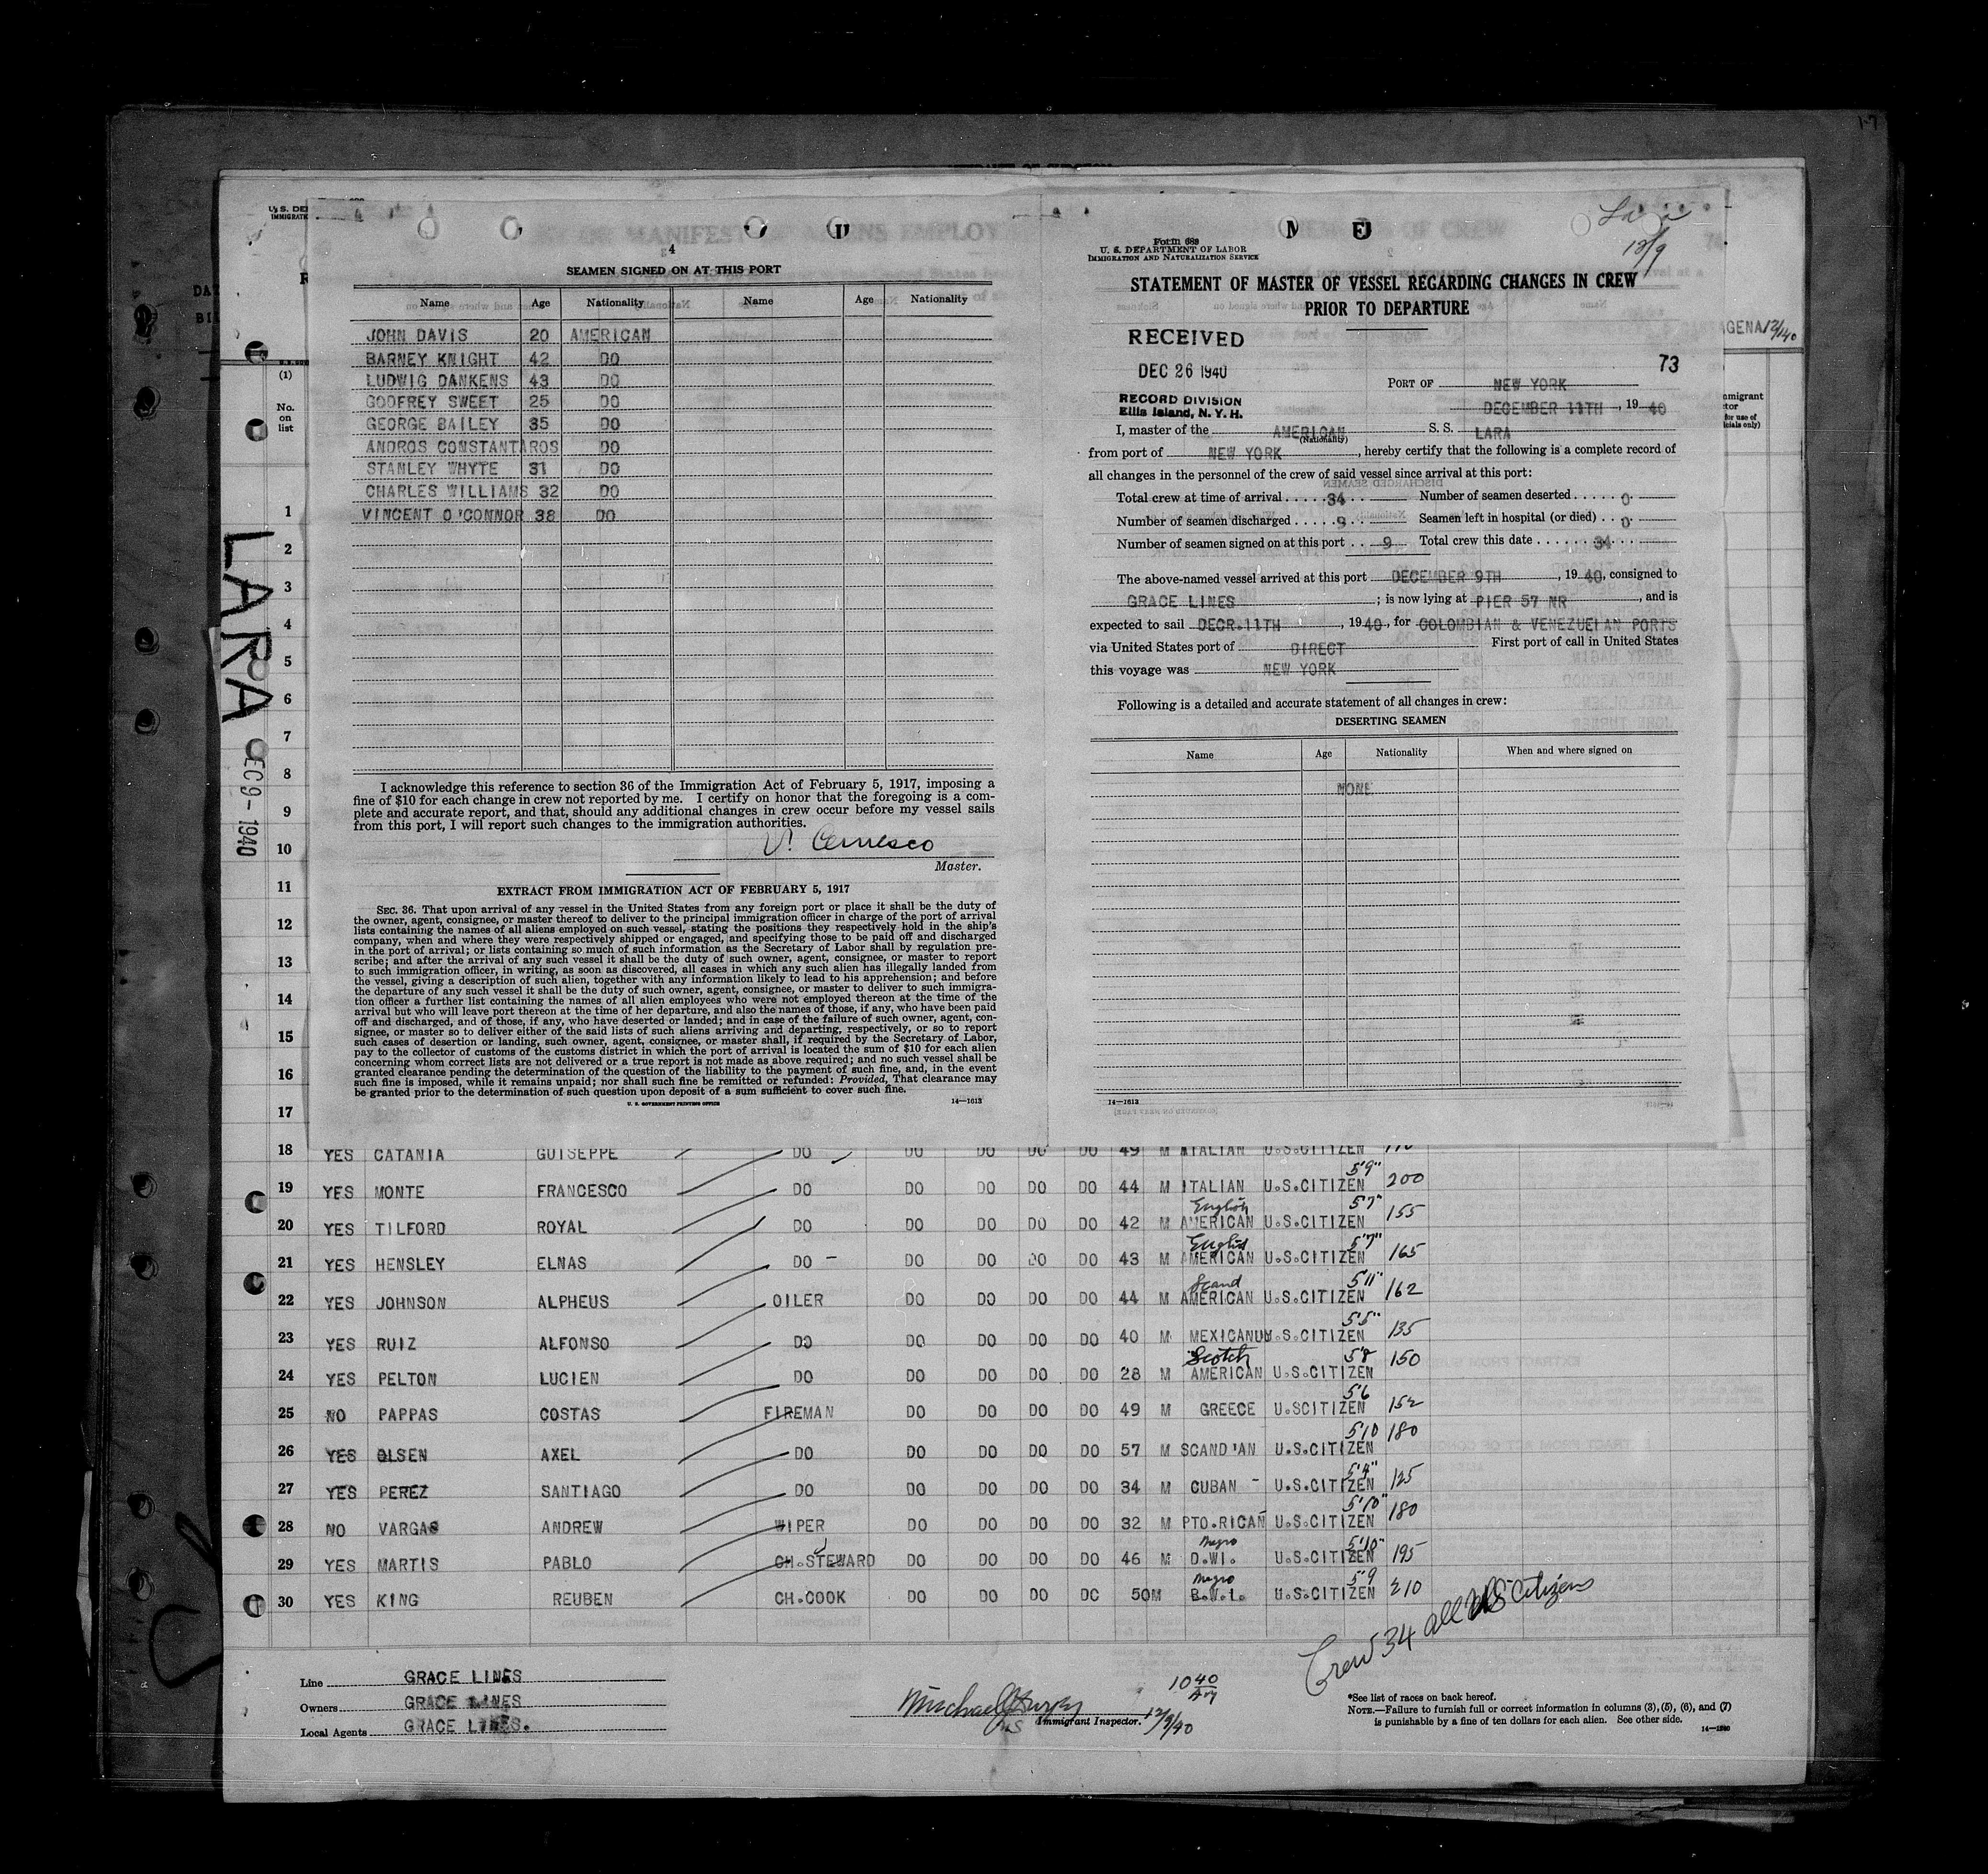 4
SEAMEN SIGNED ON AT THIS PORT
Name Age Nationality Name Age Nationality
JOHN DAVIS 20 AMERICAN
BARNEY KNIGHT 42 DO
LUDWIG DANKENS 43 DO
GODFREY SWEET 25 DO
GEORGE BAILEY 35 DO
ANDROS CONSTANTAROS DO
STANLEY WHYTE 31 DO
CHARLES WILLIAMS 32 DO
VINCENT O'CONNOR 38 DO
I acknowledge this reference to section 36 of the Immigration Act of February 5, 1917, imposing a
fine of $10 for each change in crew not reported by me. I certify on honor that the foregoing is a com-
plete and accurate report, and that, should any additional changes in crew occur before my vessel sails
from this port, I will report such changes to the immigration authorities.
Master.
EXTRACT FROM IMMIGRATION ACT OF FEBRUARY 5, 1917
SEC. 36. That upon arrival of any vessel in the United States from any foreign port or place it shall be the duty of
the owner, agent, consignee, or master thereof to deliver to the principal immigration officer in charge of the port of arrival
lists containing the names of all aliens employed on such vessel, stating the positions they respectively hold in the ship's
company, when and where they were respectively shipped or engaged, and specifying those to be paid off and discharged
in the port of arrival; or lists containing so much of such information as the Secretary of Labor shall by regulation pre-
scribe; and after the arrival of any such vessel it shall be the duty of such owner, agent, consignee, or master to report
to such immigration officer, in writing, as soon as discovered, all cases in which any such alien has illegally landed from
the vessel, giving a description of such alien, together with any information likely to lead to his apprehension; and before
the departure of any such vessel it shall be the duty of such owner, agent, consignee, or master to deliver to such immigra-
tion officer a further list containing the names of all alien employees who were not employed thereon at the time of the
arrival but who will leave port thereon at the time of her departure, and also the names of those, if any, who have been paid
off and discharged, and of those, if any, who have deserted or landed; and in case of the failure of such owner, agent, con-
signee, or master so to deliver either of the said lists of such aliens arriving and departing, respectively, or so to report
such cases of desertion or landing, such owner, agent, consignee, or master shall, if required by the Secretary of Labor,
pay to the collector of customs of the customs district in which the port of arrival is located the sum of $10 for each alien
concerning whom correct lists are not delivered or a true report is not made as above required; and no such vessel shall be
granted clearance pending the determination of the question of the liability to the payment of such fine, and, in the event
such fine is imposed, while it remains unpaid; nor shall such fine be remitted or refunded: Provided, That clearance may
be granted prior to the determination of such question upon deposit of a sum sufficient to cover such fine.
U. S. GOVERNMENT PRINTING OFFICE 14—1613
12/9
Form 689
U. S. DEPARTMENT OF LABOR
IMMIGRATION AND NATURALIZATION SERVICE
STATEMENT OF MASTER OF VESSEL REGARDING CHANGES IN CREW
PRIOR TO DEPARTURE
RECEIVED
DEC 26 1940
RECORD DIVISION
Ellis Island, N. Y. H.
73
PORT OF NEW YORK
DECEMBER 11TH, 1940
I, master of the AMERICAN S. S. LARA
(Nationality)
from port of NEW YORK, hereby certify that the following is a complete record of
all changes in the personnel of the crew of said vessel since arrival at this port:
Total crew at time of arrival 34 Number of seamen deserted 0
Number of seamen discharged 9 Seamen left in hospital (or died) 0
Number of seamen signed on at this port 9 Total crew this date 34
The above-named vessel arrived at this port DECEMBER 9TH, 1940, consigned to
GRACE LINES; is now lying at PIER 57 NR, and is
expected to sail DECR.11TH, 1940, for COLOMBIAN & VENEZUELAN PORTS
via United States port of DIRECT First port of call in United States
this voyage was NEW YORK
Following is a detailed and accurate statement of all changes in crew:
DESERTING SEAMEN
Name Age Nationality When and where signed on
NONE
14—1613
LARA
DEC 9-1940
(1)
No.
on
list
1
2
3
4
5
6
7
8
9
10
11
12
13
14
15
16
17
18 YES CATANIA GUISEPPE DO DO DO DO DO 49 M ITALIAN U.S.CITIZEN
19 YES MONTE FRANCESCO DO DO DO DO DO 44 M ITALIAN U.S.CITIZEN 5'9" 200
20 YES TILFORD ROYAL DO DO DO DO DO 42 M English AMERICAN U.S.CITIZEN 5'7" 155
21 YES HENSLEY ELNAS DO - DO DO DO DO 43 M English AMERICAN U.S.CITIZEN 5'7" 165
22 YES JOHNSON ALPHEUS OILER DO DO DO DO 44 M Scand AMERICAN U.S.CITIZEN 5'11" 162
23 YES RUIZ ALFONSO DO DO DO DO DO 40 M MEXICAN U.S.CITIZEN 5'5" 135
24 YES PELTON LUCIEN DO DO DO DO DO 28 M Scotch AMERICAN U.S.CITIZEN 5'8 150
25 NO PAPPAS COSTAS FIREMAN DO DO DO DO 49 M GREECE U.SCITIZEN 5'6 152
26 YES OLSEN AXEL DO DO DO DO DO 57 M SCAND'AN U.S.CITIZEN 5'10 180
27 YES PEREZ SANTIAGO DO DO DO DO DO 34 M CUBAN - U.S.CITIZEN 5'4" 125
28 NO VARGAS ANDREW WIPER DO DO DO DO 32 M PTO.RICAN U.S.CITIZEN 5'10" 180
29 YES MARTIS PABLO CH.STEWARD DO DO DO DO 46 M Negro D.WI. U.S.CITIZEN 5'10" 195
30 YES KING REUBEN CH.COOK DO DO DO DC 50M Negro B.W.I. U.S.CITIZEN 5'9 210
Crew 34 all US Citizens
Line GRACE LINES
Owners GRACE LINES
Local Agents GRACE LINES.
Immigrant Inspector. 12/9/40
*See list of races on back hereof.
NOTE.—Failure to furnish full or correct information in columns (3), (5), (6), and (7)
is punishable by a fine of ten dollars for each alien. See other side.